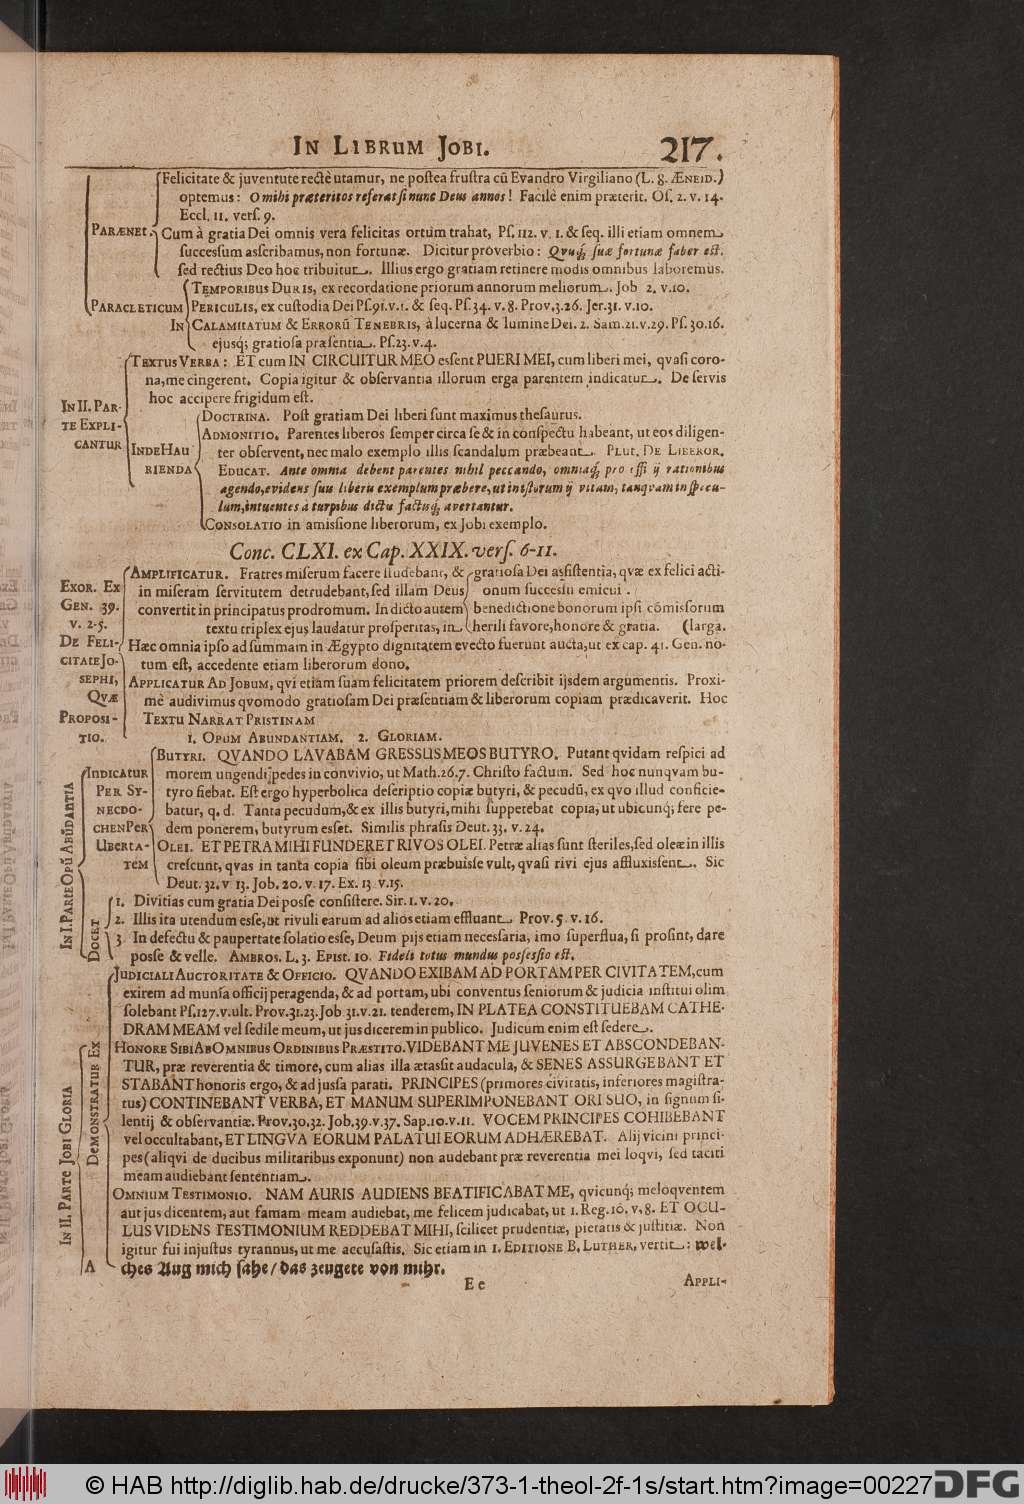 IN LIBRUM JOBI. 217.
Felicitate & juventute rectè utamur, ne postea frustra cũ Evandro Virgiliano (L. 8. ÆNEID.)
optemus: O mihi præteritos referat si nunc Deus annos! Facilè enim præterit. Os. 2. v. 14.
Eccl. 11. vers. 9.
PARÆNET. Cum à gratia Dei omnis vera felicitas ortum trahat, Ps. 112. v. 1. & seq. illi etiam omnem
successum ascribamus, non fortunæ. Dicitur proverbio: Qvuq; suæ fortunæ faber est.
sed rectius Deo hoc tribuitur. Illius ergo gratiam retinere modis omnibus laboremus.
TEMPORIBUS DURIS, ex recordatione priorum annorum meliorum. Job 2. v.10.
PARACLETICUM PERICULIS, ex custodia Dei Ps.91.v.1. & seq. Ps. 34. v. 8. Prov.3.26. Jer.31. v.10.
IN CALAMITATUM & ERRORŨ TENEBRIS, à lucerna & lumine Dei. 2. Sam.21.v.29. Ps. 30.16.
ejusq; gratiosa præsentia. Ps.23.v.4.
TEXTUS VERBA: ET cum IN CIRCUITUR MEO essent PUERI MEI, cum liberi mei, qvasi coro-
na, me cingerent. Copia igitur & observantia illorum erga parentem indicatur. De servis
IN II. PAR- hoc accipere frigidum est.
TE EXPLI- DOCTRINA. Post gratiam Dei liberi sunt maximus thesaurus.
CANTUR INDE HAU ADMONITIO. Parentes liberos semper circa se & in conspectu habeant, ut eos diligen-
ter observent, nec malo exemplo illis scandalum præbeant. PLUT. DE LIBEROR.
RIENDA EDUCAT. Ante omnia debent parentes nihil peccando, omniaq; pro ij rationibus
agendo, evidens suu liberu exemplum præbere, ut in istorum ij vitam, tanqvam in specu-
lum, intuentes à turpibus dictu factuq; avertantur.
CONSOLATIO in amissione liberorum, ex Jobi exemplo.
Conc. CLXI. ex Cap. XXIX. vers. 6-11.
AMPLIFICATUR. Fratres miserum facere studebant, & gratiosa Dei assistentia, qvæ ex felici acti-
EXOR. EX in miseram servitutem detrudebant, sed illam Deus onum successu emicui .
GEN. 39. convertit in principatus prodromum. In dicto autem benedictione bonorum ipsi cõmissorum
V. 2-5. textu triplex ejus laudatur prosperitas, in herili favore, honore & gratia. (larga.
DE FELI- Hæc omnia ipso ad summam in Ægypto dignitatem evecto fuerunt aucta, ut ex cap. 41. Gen. no-
CITATE JO- tum est, accedente etiam liberorum dono.
SEPHI, APPLICATUR AD JOBUM, qvi etiam suam felicitatem priorem describit ijsdem argumentis. Proxi-
QVÆ mè audivimus qvomodo gratiosam Dei præsentiam & liberorum copiam prædicaverit. Hoc
PROPOSI- TEXTU NARRAT PRISTINAM
TIO. 1. OPUM ABUNDANTIAM. 2. GLORIAM.
BUTYRI. QVANDO LAVABAM GRESSUS MEOS BUTYRO. Putant qvidam respici ad
INDICATUR morem ungendi pedes in convivio, ut Math.26.7. Christo factum. Sed hoc nunqvam bu-
PER SY- tyro fiebat. Est ergo hyperbolica descriptio copiæ butyri, & pecudũ, ex qvo illud conficie-
NECDO- batur, q. d. Tanta pecudum, & ex illis butyri, mihi suppetebat copia, ut ubicunq; fere pe-
CHEN PER dem ponerem, butyrum esset. Similis phrasis Deut. 33. v. 24.
UBERTA- OLEI. ET PETRA MIHI FUNDERET RIVOS OLEI. Petræ alias sunt steriles, sed oleæ in illis
TEM crescunt, qvas in tanta copia sibi oleum præbuisse vult, qvasi rivi ejus affluxissent. Sic
Deut. 32. v 13. Job. 20. v. 17. Ex. 13 v.15.
IN I. PARTE OPŨ ABŨDANTIA
DOCET 1. Divitias cum gratia Dei posse consistere. Sir. 1. v. 20.
2. Illis ita utendum esse, ut rivuli earum ad alios etiam effluant. Prov. 5 v. 16.
3 In defectu & paupertate solatio esse, Deum pijs etiam necessaria, imo superflua, si prosint, dare
posse & velle. AMBROS. L. 3. Epist. 10. Fideli totus mundus possessio est.
JUDICIALI AUCTORITATE & OFFICIO. QVANDO EXIBAM AD PORTAM PER CIVITATEM, cum
exirem ad munsa officij peragenda, & ad portam, ubi conventus seniorum & judicia institui olim
solebant Ps.127.v.ult. Prov.31.23. Job 31.v.21. tenderem, IN PLATEA CONSTITUEBAM CATHE-
DRAM MEAM vel sedile meum, ut jus dicerem in publico. Judicum enim est sedere.
HONORE SIBI AB OMNIBUS ORDINIBUS PRÆSTITO. VIDEBANT ME JUVENES ET ABSCONDEBAN-
TUR, præ reverentia & timore, cum alias illa ætas sit audacula, & SENES ASSURGEBANT ET
STABANT honoris ergo, & ad jussa parati. PRINCIPES (primores civitatis, inferiores magistra-
tus) CONTINEBANT VERBA, ET MANUM SUPERIMPONEBANT ORI SUO, in signum si-
lentij & observantiæ. Prov.30.32. Job.39.v.37. Sap.10.v.11. VOCEM PRINCIPES COHIBEBANT
vel occultabant, ET LINGVA EORUM PALATUI EORUM ADHÆREBAT. Alij vicini princi-
pes (aliqvi de ducibus militaribus exponunt) non audebant præ reverentia mei loqvi, sed taciti
meam audiebant sententiam.
IN II. PARTE JOBI GLORIA
DEMONSTRATUR EX
OMNIUM TESTIMONIO. NAM AURIS AUDIENS BEATIFICABAT ME, qvicunq; meloqventem
aut jus dicentem, aut famam meam audiebat, me felicem judicabat, ut 1. Reg.10. v.8. ET OCU-
LUS VIDENS TESTIMONIUM REDDEBAT MIHI, scilicet prudentiæ, pietatis & justitiæ. Non
igitur fui injustus tyrannus, ut me accusastis. Sic etiam in 1. EDITIONE B. LUTHER. vertit: wel-
A ches Aug mich sahe / das zeugete von mihr.
E e APPLI-
© HAB http://diglib.hab.de/drucke/373-1-theol-2f-1s/start.htm?image=00227 DFG